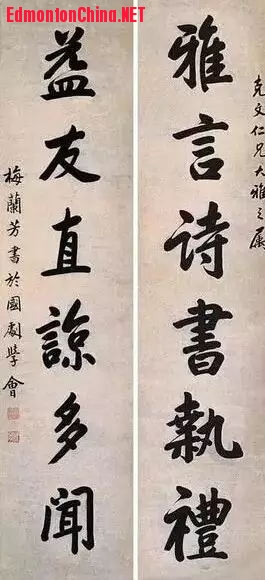 EdmontonChina.NET
克文仁兄大雅之属
雅言诗書執禮
益友直諒多聞
梅蘭芳書於國劇學會